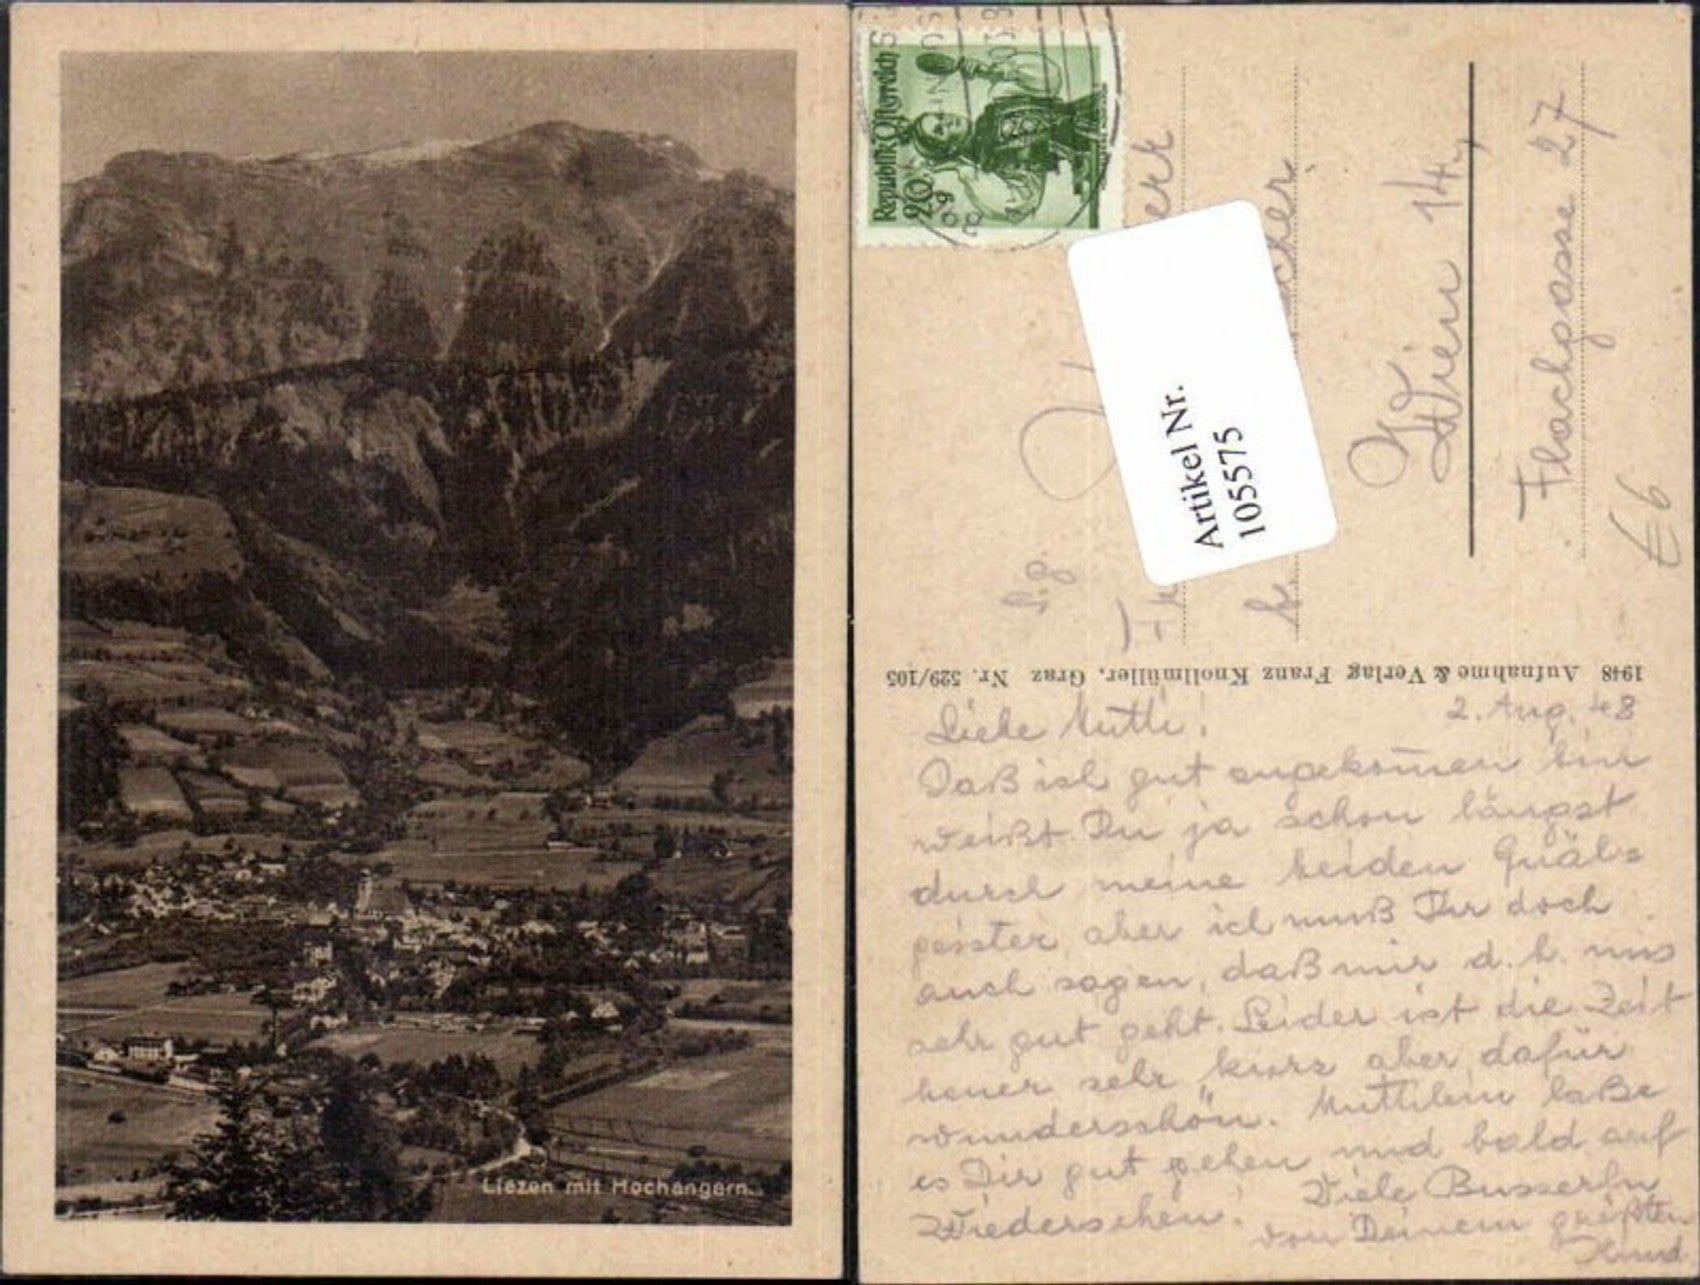 Liezen mit Hochangern
Republik Österreich
20
Artikel Nr.
105575
Wien 14,
Flachgasse 27
€6
1948 Aufnahme & Verlag Franz Knollmüller, Graz Nr. 529/105
2. Aug. 48
Liebe Mutti!
Daß ich gut angekommen bin
weißt Du ja schon längst
durch meine beiden Quäl=
geister, aber ich muß Ihr doch
auch sagen, daß mir d. h. uns
sehr gut geht. Leider ist die Zeit
heuer sehr kurz aber dafür
wunderschön. Muttilein laße
es Dir gut gehen und bald auf
Wiedersehen! Viele Busserln
von Deinem größten